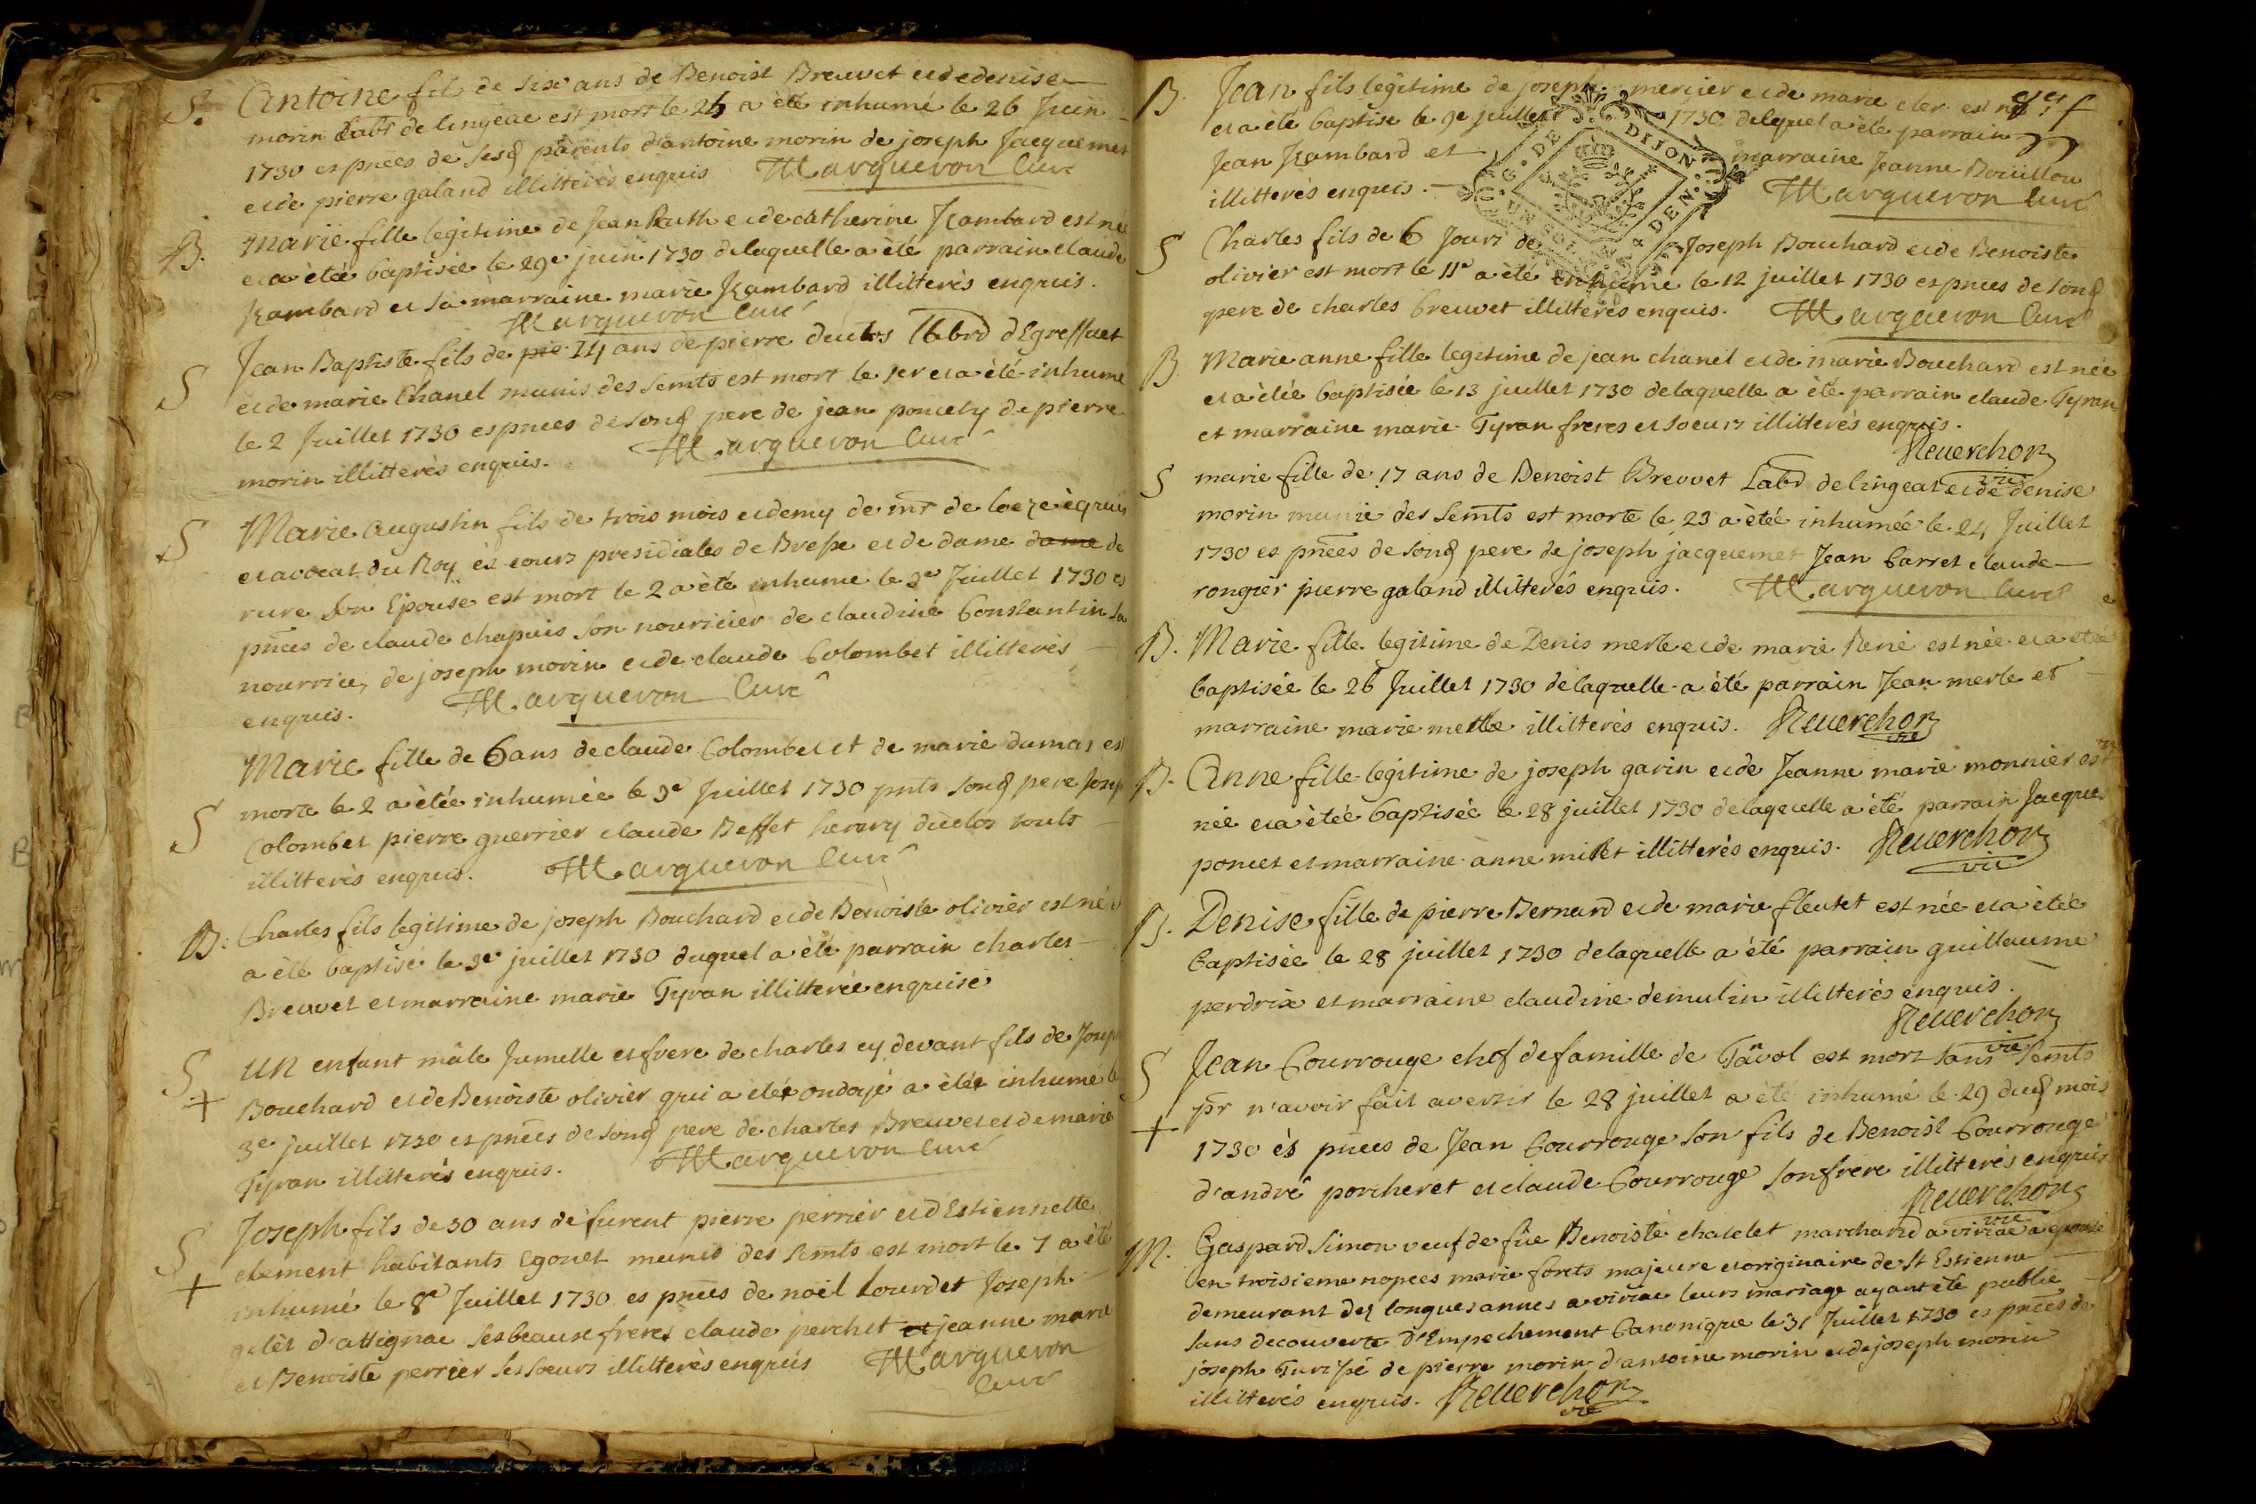 S. Antoine fils de six ans de Benoist Breuvet et de denise
morin habt de lingeac est mort le 25 a èté inhumé le 26 Juin
1730 es pnces de sesd parents d'antoine morin de joseph Jacquemet
et de pierre galand illitterés enquis Marqueron Curé
B. Marie fille legitime de Jean Ruth et de catherine Jambard est née
et a ètée baptisée le 29e juin 1730 de laquelle a èté parrain claude
Jambard et sa marraine marie Jambard illitterés enquis.
Marqueron Curé
S Jean Baptiste fils de 14 ans de pierre duclos labrd d'Egreffuet
et de marie Chanel munis des Semts est mort le 1er et a èté inhumé
le 2 Juillet 1730 es pnces de sond pere de jean poncety de pierre
morin illitterés enquis. Marqueron Curé
S Marie augustin fils de trois mois et demy de mr de loeze équier
et avocat du Roy ès cours presidiales de Bresse et de dame dame de
rure son Epouse est mort le 2 a èté inhumé le 3e Juillet 1730 es
pnces de claude chapuis son nouricier de claudine Constantin sa
nourrice, de joseph morin et de claude Colombet illitterés
enquis. Marqueron Curé
Marie fille de 6 ans de claude Colombet et de marie dumas est
S morte le 2 a ètée inhumée le 3e Juillet 1730 pnts sond pere Josep
Colombet pierre guerrier claude Beffet henry duclos touts
illitterés enquis. Marqueron Curé
B. Charles fils legitime de joseph Bouchard et de Benoiste olivier est né
a èté baptisé le 3e juillet 1730 duquel a èté parrain charles
Breuvet et marraine marie Tyran illitterée enquise
S UN enfant mâle Jumelle et frere de charles cy devant fils de Josep
+ Bouchard et de Benoiste olivier qui a èté ondoyé a èté inhumé le
3e juillet 1730 es pnces de sond pere de charles Breuvet et de marie
Tyran illitterés enquis. Marqueron Curé
S Joseph fils de 30 ans de furent pierre perrier et d'Estiennette
+ clement habitants Egouet munis des semts est mort le 7 a èté
inhumé le 8e Juillet 1730 es pnces de noël Lourdet Joseph
gilet d'attignac ses beaux freres claude perchet et jeanne marie
et Benoiste perrier ses sœurs illitterés enquis Marqueron
Curé
B. Jean fils legitime de joseph mercier et de marie cler est né
et a èté baptisé le 9e juillet 1730 delquel a èté parrain
Jean Jambard et marraine Jeanne Bouillou
illitterés enquis. Marqueron Curé
G. DE DIJON
S Charles fils de 6 Jours de Joseph Bouchard et de Benoiste
olivier est mort le 11e a èté inhumé le 12 juillet 1730 es pnces de sond
pere de charles breuvet illitterés enquis. Marqueron Curé
B. Marie anne fille legitime de jean chanel et de marie Bouchard est née
et a ètée baptisée le 13 juillet 1730 de laquelle a èté parrain claude Tyran
et marraine marie Tyran freres et soeurs illitterés enquis.
Reuerchon
vic
S marie fille de 17 ans de Benoist Breuvet Labd de lingeat et de denise
morin munie des Semts est morte le 23 a ètée inhumée le 24 Juillet
1730 es pnces de sond pere de joseph jacquemet Jean barret claude
rongier pierre galand illitterés enquis. Marqueron Curé
B. Marie fille legitime de Denis merle et de marie René est née et a ètée
baptisée le 26 Juillet 1730 de laquelle a èté parrain Jean merle et
marraine marie merle illitterés enquis. Reuerchon
vic
B. Anne fille legitime de joseph garin et de Jeanne marie monnier est
née et a ètée baptisée le 28 juillet 1730 de laquelle a èté parrain Jacque
poncet et marraine anne milet illitterés enquis. Reuerchon
vic
B. Denise fille de pierre Bernard et de marie fleutet est née et a ètée
baptisée le 28 juillet 1730 de laquelle a èté parrain guillaume
perdrix et marraine claudine demulin illitterés enquis.
Reuerchon
vic
S Jean Courrouge chef de famille de Tavol est mort sans Semts
+ pr n'avoir fait avertir le 28 juillet a èté inhumé le 29 dud mois
1730 ès pnces de Jean Courrouge son fils de Benoist Courrouge
d'andré porcheret et claude Courrouge son frere illitterés enquis
Reuerchon
vic
M. Gaspard Simon veuf de füe Benoiste chatelet marchand a viriac a epousé
en troisieme nopces marie forets majeure et originaire de St Estienne
demeurant dez longues annes a viriac leurs mariage ayant èté publié
sans decouverte d'Empechement Canonique le 31 Juillet 1730 es pnces de
joseph Turissé de pierre morin d'antoine morin et de joseph morin
illitterés enquis. Reuerchon
vic